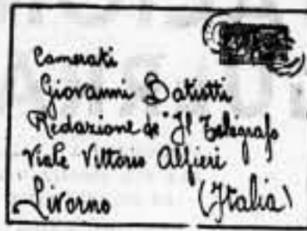 Camerati
Giovanni Batistti
Redazione de "Il Telegrafo
Viale Vittorio Alfieri
Livorno (Italia)